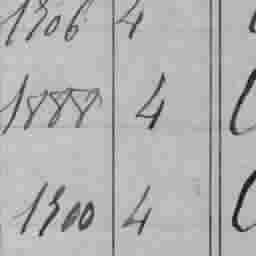 1906 4
1888 4
1900 4